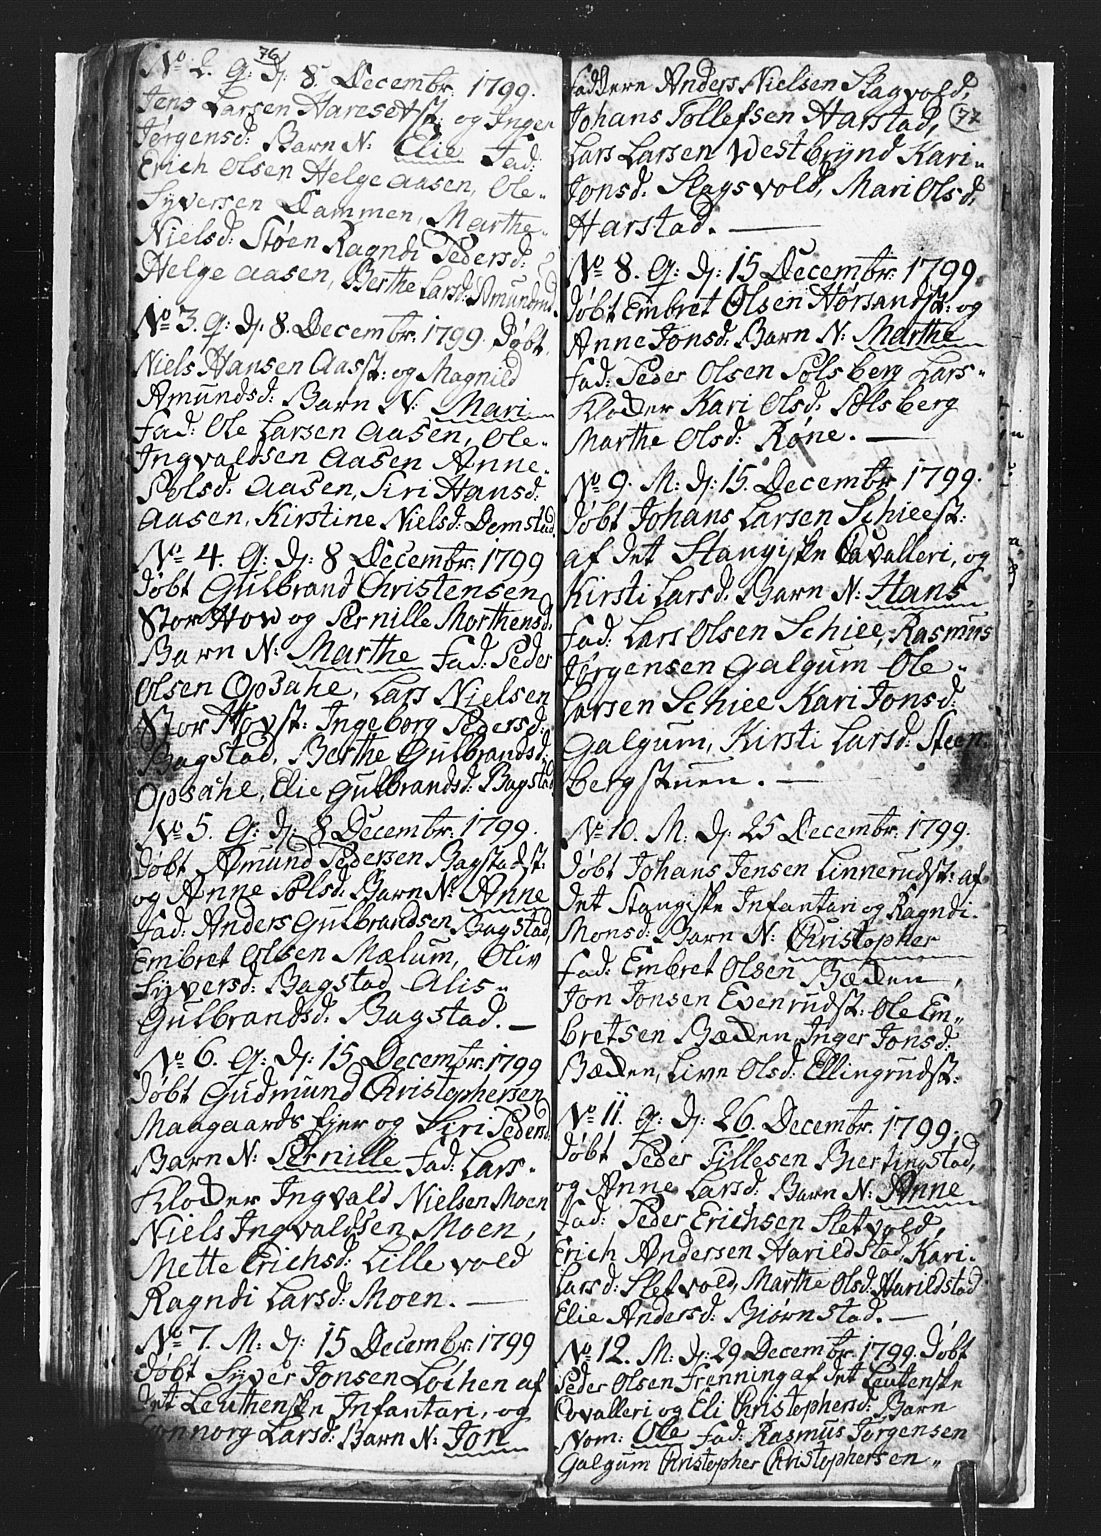 76
No 2. Q: Dj: 8. Decembr: 1799.
Jens Larsen Haresetst: og Inger
Jørgensd: Barn N: Elie Fad:
Erich Olsen Helge aasen, Ole-
Syversen Dammen, Marthe-
Nielsd: Støen Ragndi Pedersd:
Helge aasen, Berthe Larsd: Amundrud.
No 3. Q: Dj: 8. Decembr: 1799. Døbt
Niels Hansen Aasst: og Magnild
Amundsd: Barn N: Mari
Fad: Ole Larsen Aasen, Ole-
Ingvaldsen Aasen Anne-
Polsd: Aasen, Siri Hansd:
Aasen, Kirstine Nielsd: Domstad.
No 4. Q: Dj: 8 Decembr: 1799
Døbt Gulbrand Christensen
Stor How og Pernille Morthensd:
Barn N: Marthe Fad: Peder
Olsen Opsahe, Lars Nielsen
Stor Hovst: Ingeborg Pedersd:
Bagstad, Berthe Gulbrandsd:
Opsahe, Elie Gulbrandsd: Bagstad
No 5. Q: Dj: 8 Decembr: 1799.
Døbt Amund Pedersen Bagstadst:
og Anne Polsd: Barn N: Anne
Fad: Anders Gulbrandsen Bagstad,
Embret Olsen Mælum, Oliv
Syversd: Bagstad Alis-
Gulbrandsd: Bagstad. —
No 6. Q: Dj: 15 Decembr: 1799
Døbt Gudmund Christophersen
Maagaards Ejer og Siri Pedersd:
Barn N: Pernille Fad: Lars-
Kloder Ingvald Nielsen Moen
Niels Ingvaldsen Moen,
Mette Erichsd: Lille vold
Ragndi Larsd: Moen. —
No 7. M: Dj: 15 Decembr: 1799
Døbt Syver Jonsen Løchen af
det Leuthenske Infantari, og
Gonnorg Larsd: Barn N: Jon
77
Faddern Anders Nielsen Slagvold,
Johans Tollefsen Harstad,
Lars Larsen Westbrynd Kari-
Jonsd: Slagsvold, Mari Olsd:
Harstad. —
No 8. Q: Dj: 15 Decembr: 1799.
Døbt Embret Olsen Hørsandst: og
Anne Jonsd: Barn N: Marthe
Fad: Peder Olsen Polsberg Lars-
Kloder Kari Olsd: Polsberg
Marthe Olsd: Røne. —
No 9. M: Dj: 15 Decembr: 1799.
Døbt Johans Larsen Schieest:
af det Stangiske Cavalleri, og
Kirsti Larsd: Barn N: Hans
Fad: Lars Olsen Schiee, Rasmus
Jørgensen Galgum Ole-
Larsen Schiee Kari Jonsd:
Galgum, Kirsti Larsd: Steen-
bergstuen. —
No 10. M: Dj: 25 Decembr: 1799.
Døbt Johans Jensen Linnerudst: af
det Stangiske Infantari og Ragndi-
Monsd: Barn N: Christopher
Fad: Embret Olsen Bædden,
Jon Jonsen Evenrudst: Ole Em-
bretsen Bædden, Inger Jonsd:
Bædden, Live Olsd: Ellingrudst:
No 11. Q: Dj: 26. Decembr: 1799.
Døbt Peder Tillesen Biertingstad,
og Anne Larsd: Barn N: Anne
Fad: Peder Erichsen Sletvold,
Erich Andersen Harildstad, Kari-
Larsd: Sletvold, Marthe Olsd: Harildstad
Elie Andersd: Biørnstad. —
No 12. M: Dj: 29 Decembr: 1799. Døbt
Peder Olsen Frenning af det Leutenske
Covalleri og Eli Christophersd: Barn
Nom: Ole Fad: Rasmus Jørgensen
Galgum Christopher Christophersen-